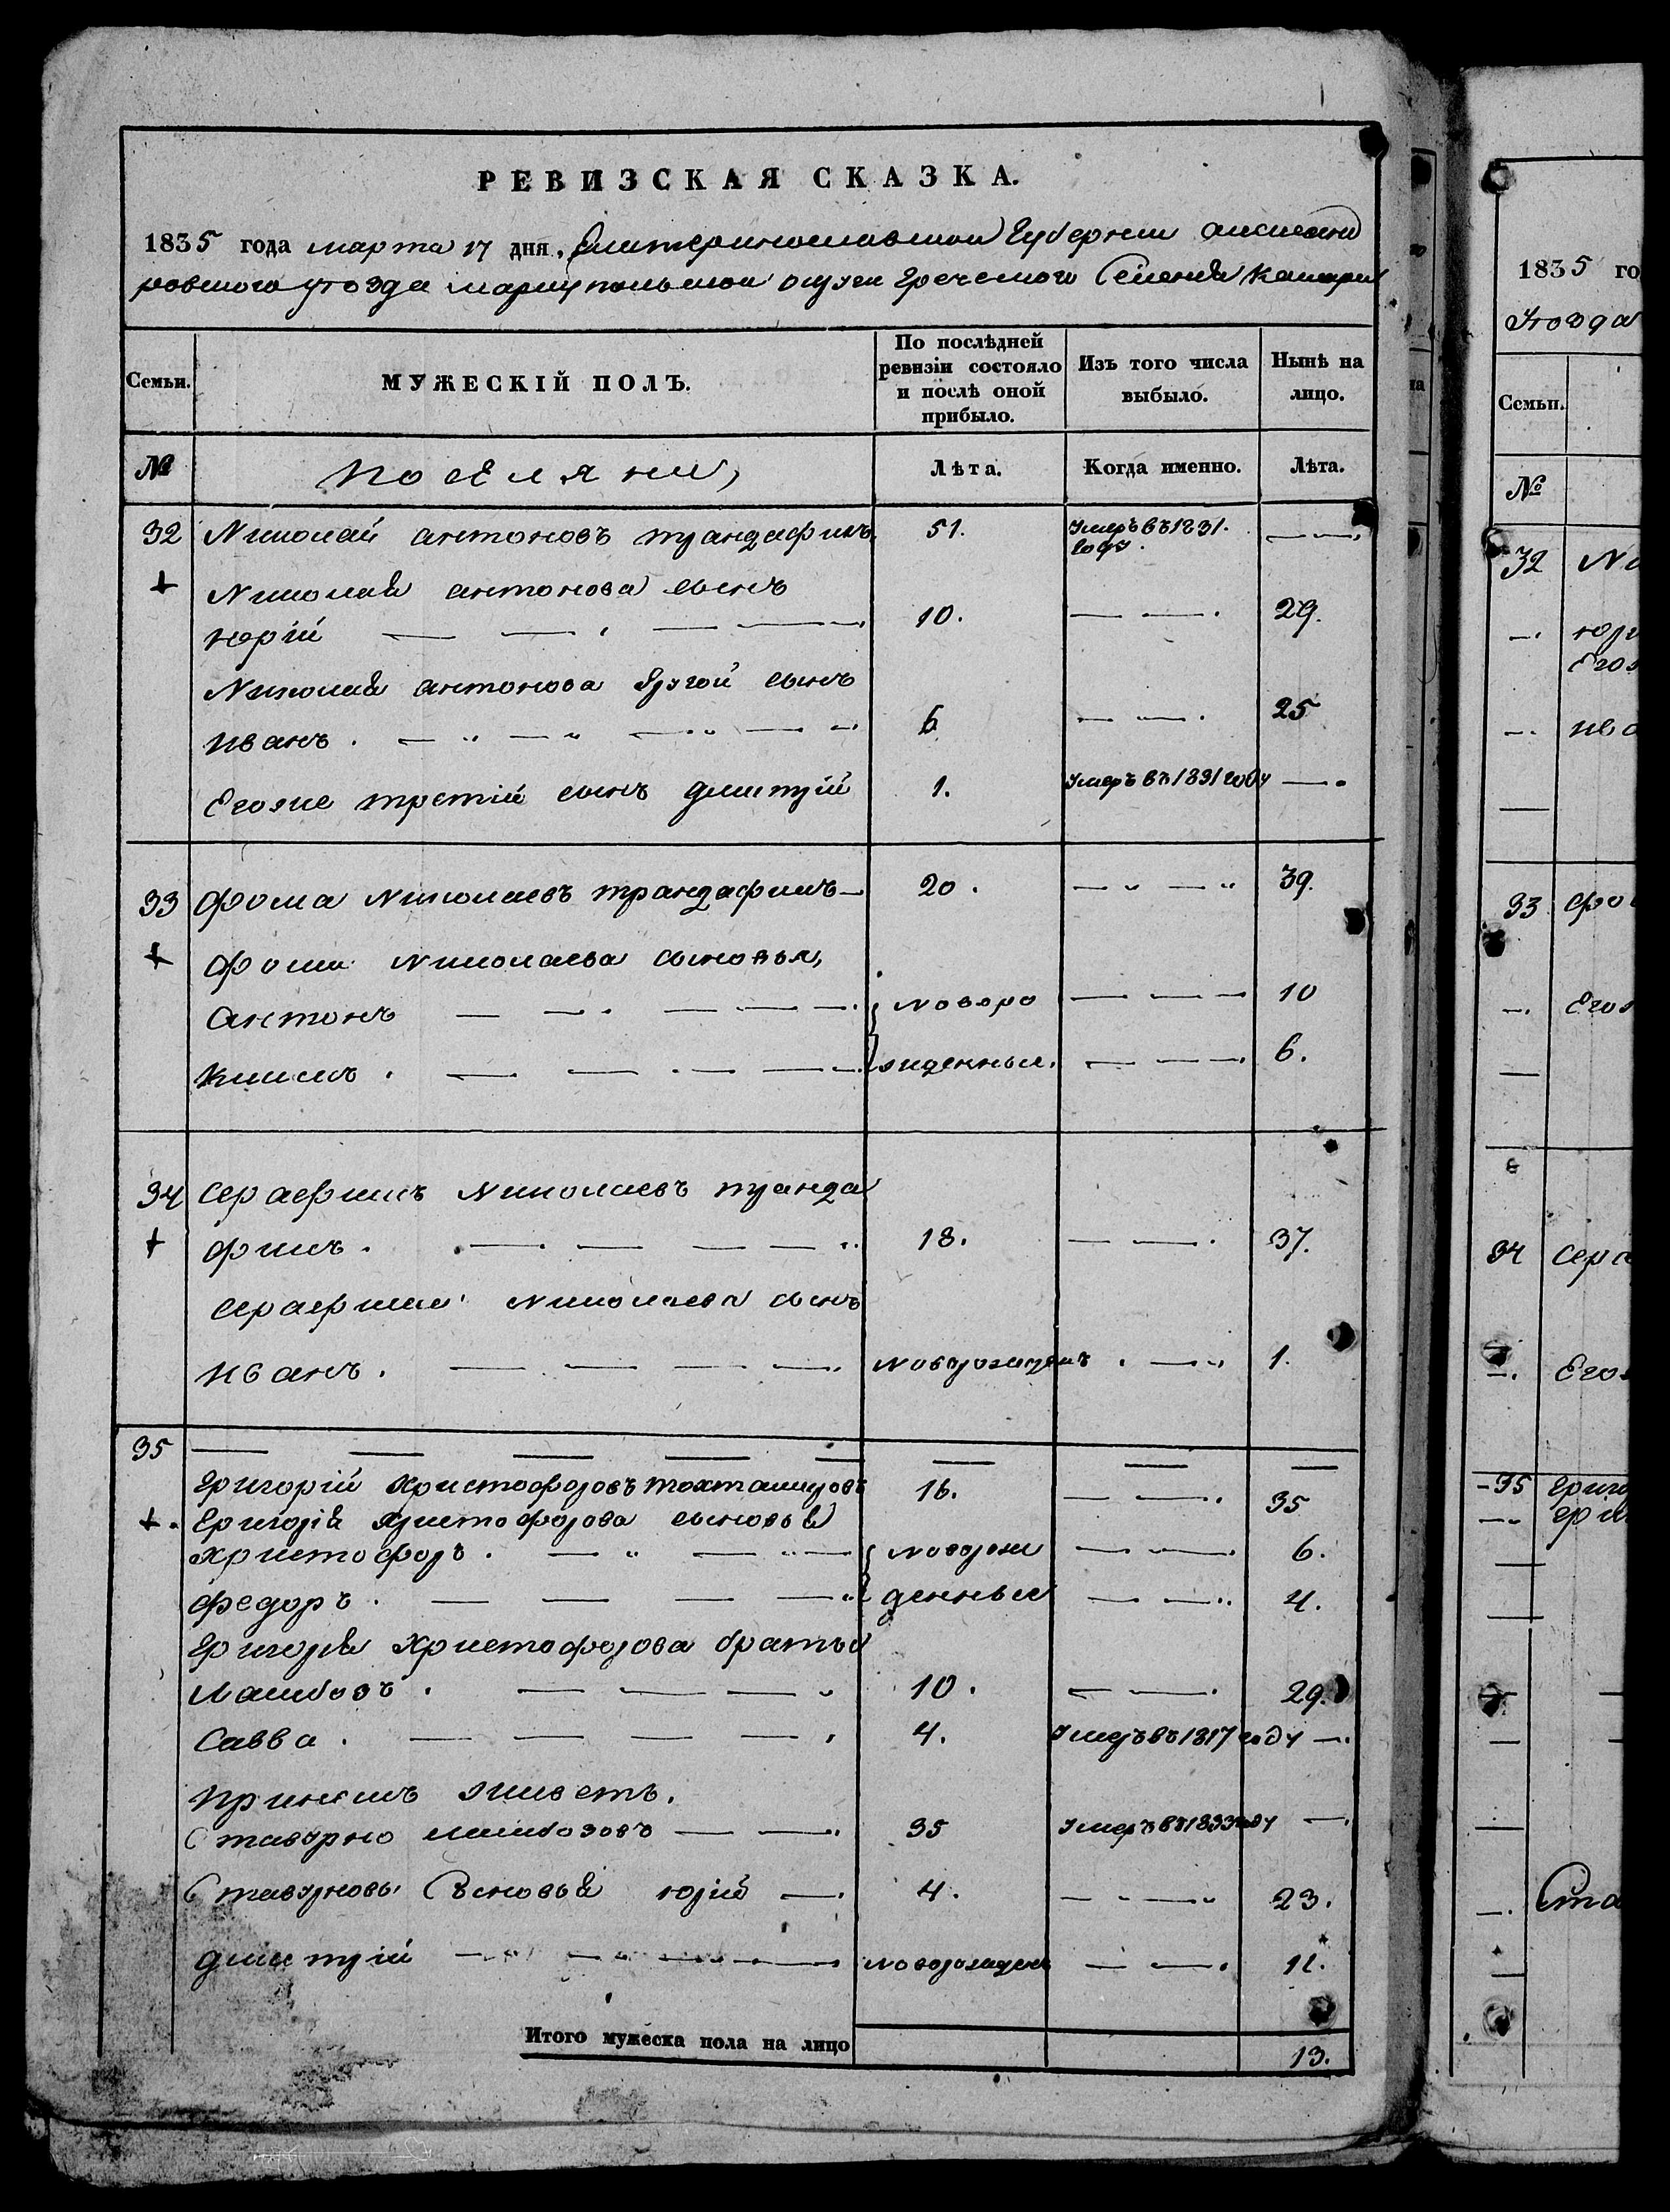 РЕВИЗСКАЯ СКАЗКА.
1835 года марта 17 дня, Екатеринославской Губернии Александ
ровского уѣзда мариупольской округи Греческого Селенія
Семьи.
МУЖЕСКІЙ ПОЛЪ.
По послѣдней ревизіи состояло и послѣ оной прибыло.
Изъ того числа выбыло.
Нынѣ на лицо.
№ поселяни, Лѣта. Когда именно. Лѣта.
32 Николай антоновъ трандафилъ 51. Умеръ въ 1831.
году.
Николая антонова сынъ
юрій 10. 29.
Николая антонова другой сынъ
иванъ. 6 25
Егоже третій сынъ дмитрій 1. Умеръ въ 1831 году
33 Фома Николаевъ трандафилъ 20. 39.
Фомы Николаева сыновья,
антонъ новоро 10
жденныя. 6.
34 серафимъ Николаевъ транда
филъ. 18. 37.
серафима Николаева сынъ
иванъ. новорожденъ 1.
35
григорій Христофоровъ тохтамыровъ 16. 35
григорія христофорова сыновья
христофоръ. новорож 6.
федоръ. денныя 4.
григорія христофорова братья
10. 29.
савва. 4. Умеръ въ 1817 году
35 Умеръ въ 1833 году
сыновья юрій 4. 23.
дмитрій новорожденъ 11.
Итого мужеска пола на лицо 13.
1835 го
Уѣзда
Семьи.
№
32 Ни
юри
Егож
ива
33 фо
Егож
34 сера
Егож
35 григ
гри
Ста